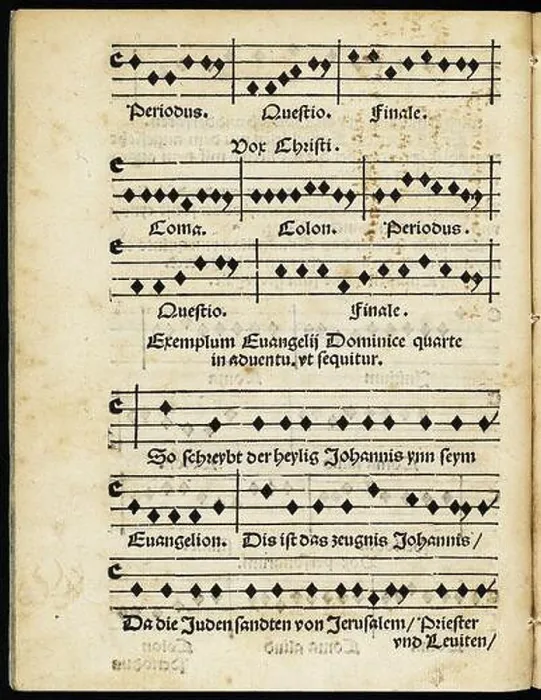 Periodus. Questio. Finale.
Vox Christi.
Coma. Colon. Periodus.
Questio. Finale.
Exemplum Euangelij Dominice quarte
in aduentu. vt sequitur.
So schreybt der heylig Johannis ynn seym
Euangelion. Dis ist das zeugnis Johannis/
Da die Juden sandten von Jerusalem/ Priester
vnd Leuiten/